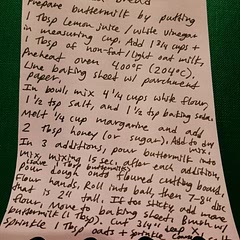 Bread
Prepare buttermilk by putting
1 Tbsp lemon juice / white vinegar
in measuring cup. Add 1 3/4 cups +
1 Tbsp of non-fat/light oat milk.
Preheat oven 400°F (204°C).
Line baking sheet w/ parchment
paper.
In bowl, mix 4 1/4 cups white flour,
1 1/2 tsp salt, and 1 1/2 tsp baking soda.
Melt 1/4 cup margarine and add
2 Tbsp honey (or sugar). Add to dry
mix.
In 3 additions, pour buttermilk into
mix, mixing 15 sec after each addition.
Pour dough onto floured cutting board.
Flour hands. Roll into ball, then 7-8" disc
that is 2" tall. If too sticky add more
flour. Move to baking sheet.
buttermilk (1 Tbsp). Cut 3/4" deep X
Sprinkle 1 Tbsp oats + sprinkle